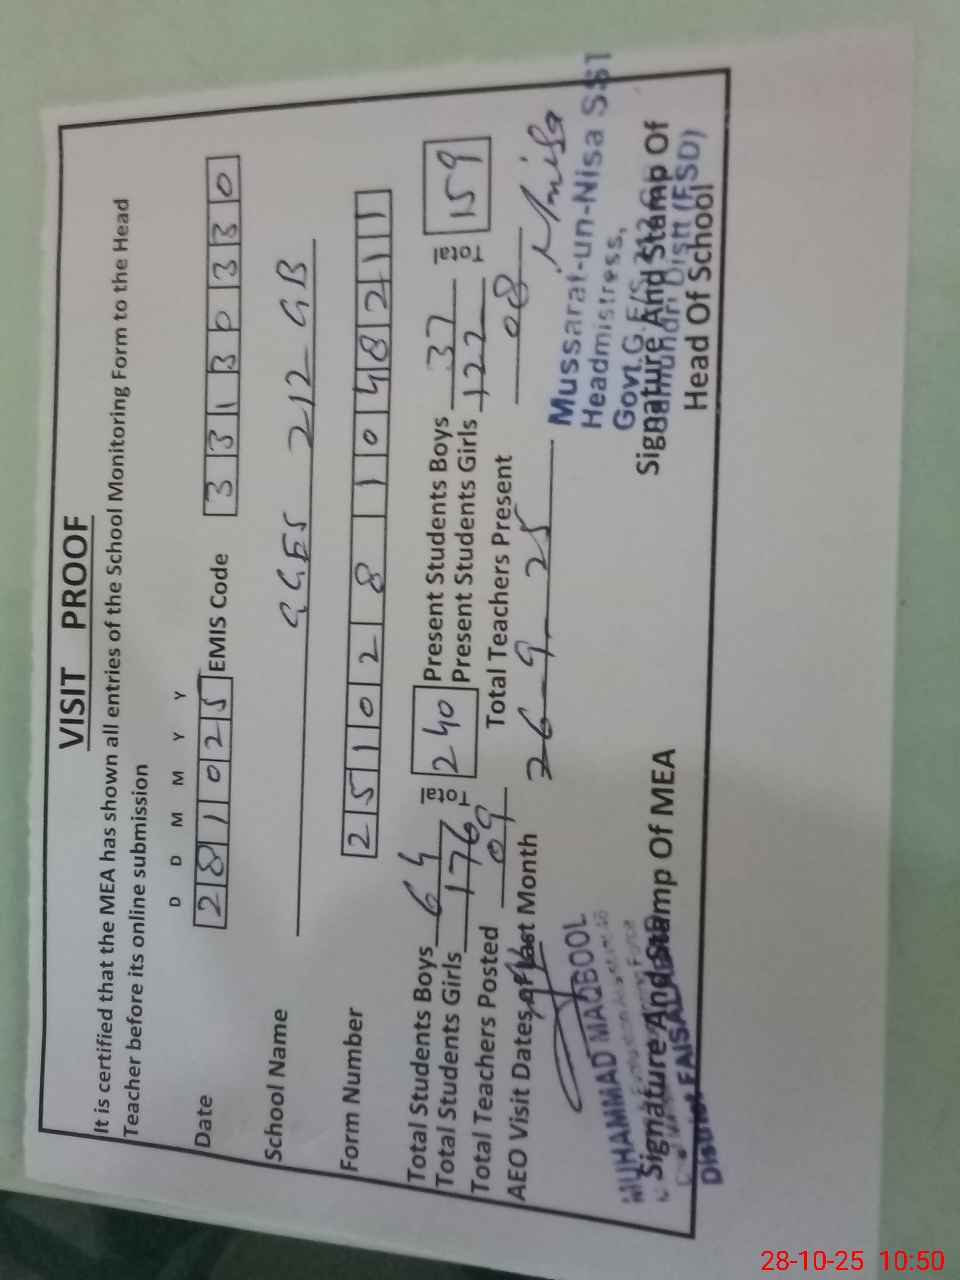 VISIT PROOF
It is certified that the MEA has shown all entries of the School Monitoring Form to the Head
Teacher before its online submission
D D M M Y Y
Date 281025 EMIS Code 33130330
School Name GGES 212 GB
Form Number 2510281048211
Total Students Boys 64 Total 240 Present Students Boys 37 Total 159
Total Students Girls 176 Present Students Girls 122
Total Teachers Posted 09 Total Teachers Present 08
AEO Visit Dates of Last Month 26-9-25
Nnisa
MUHAMMAD MAQBOOL
District FAISALABAD
Signature And Stamp Of MEA
Mussarat-un-Nisa SST
Headmistress,
Govt.G.E/S. 212 GB
Distt (FSD)
Signature And Stamp Of
Head Of School
28-10-25 10:50